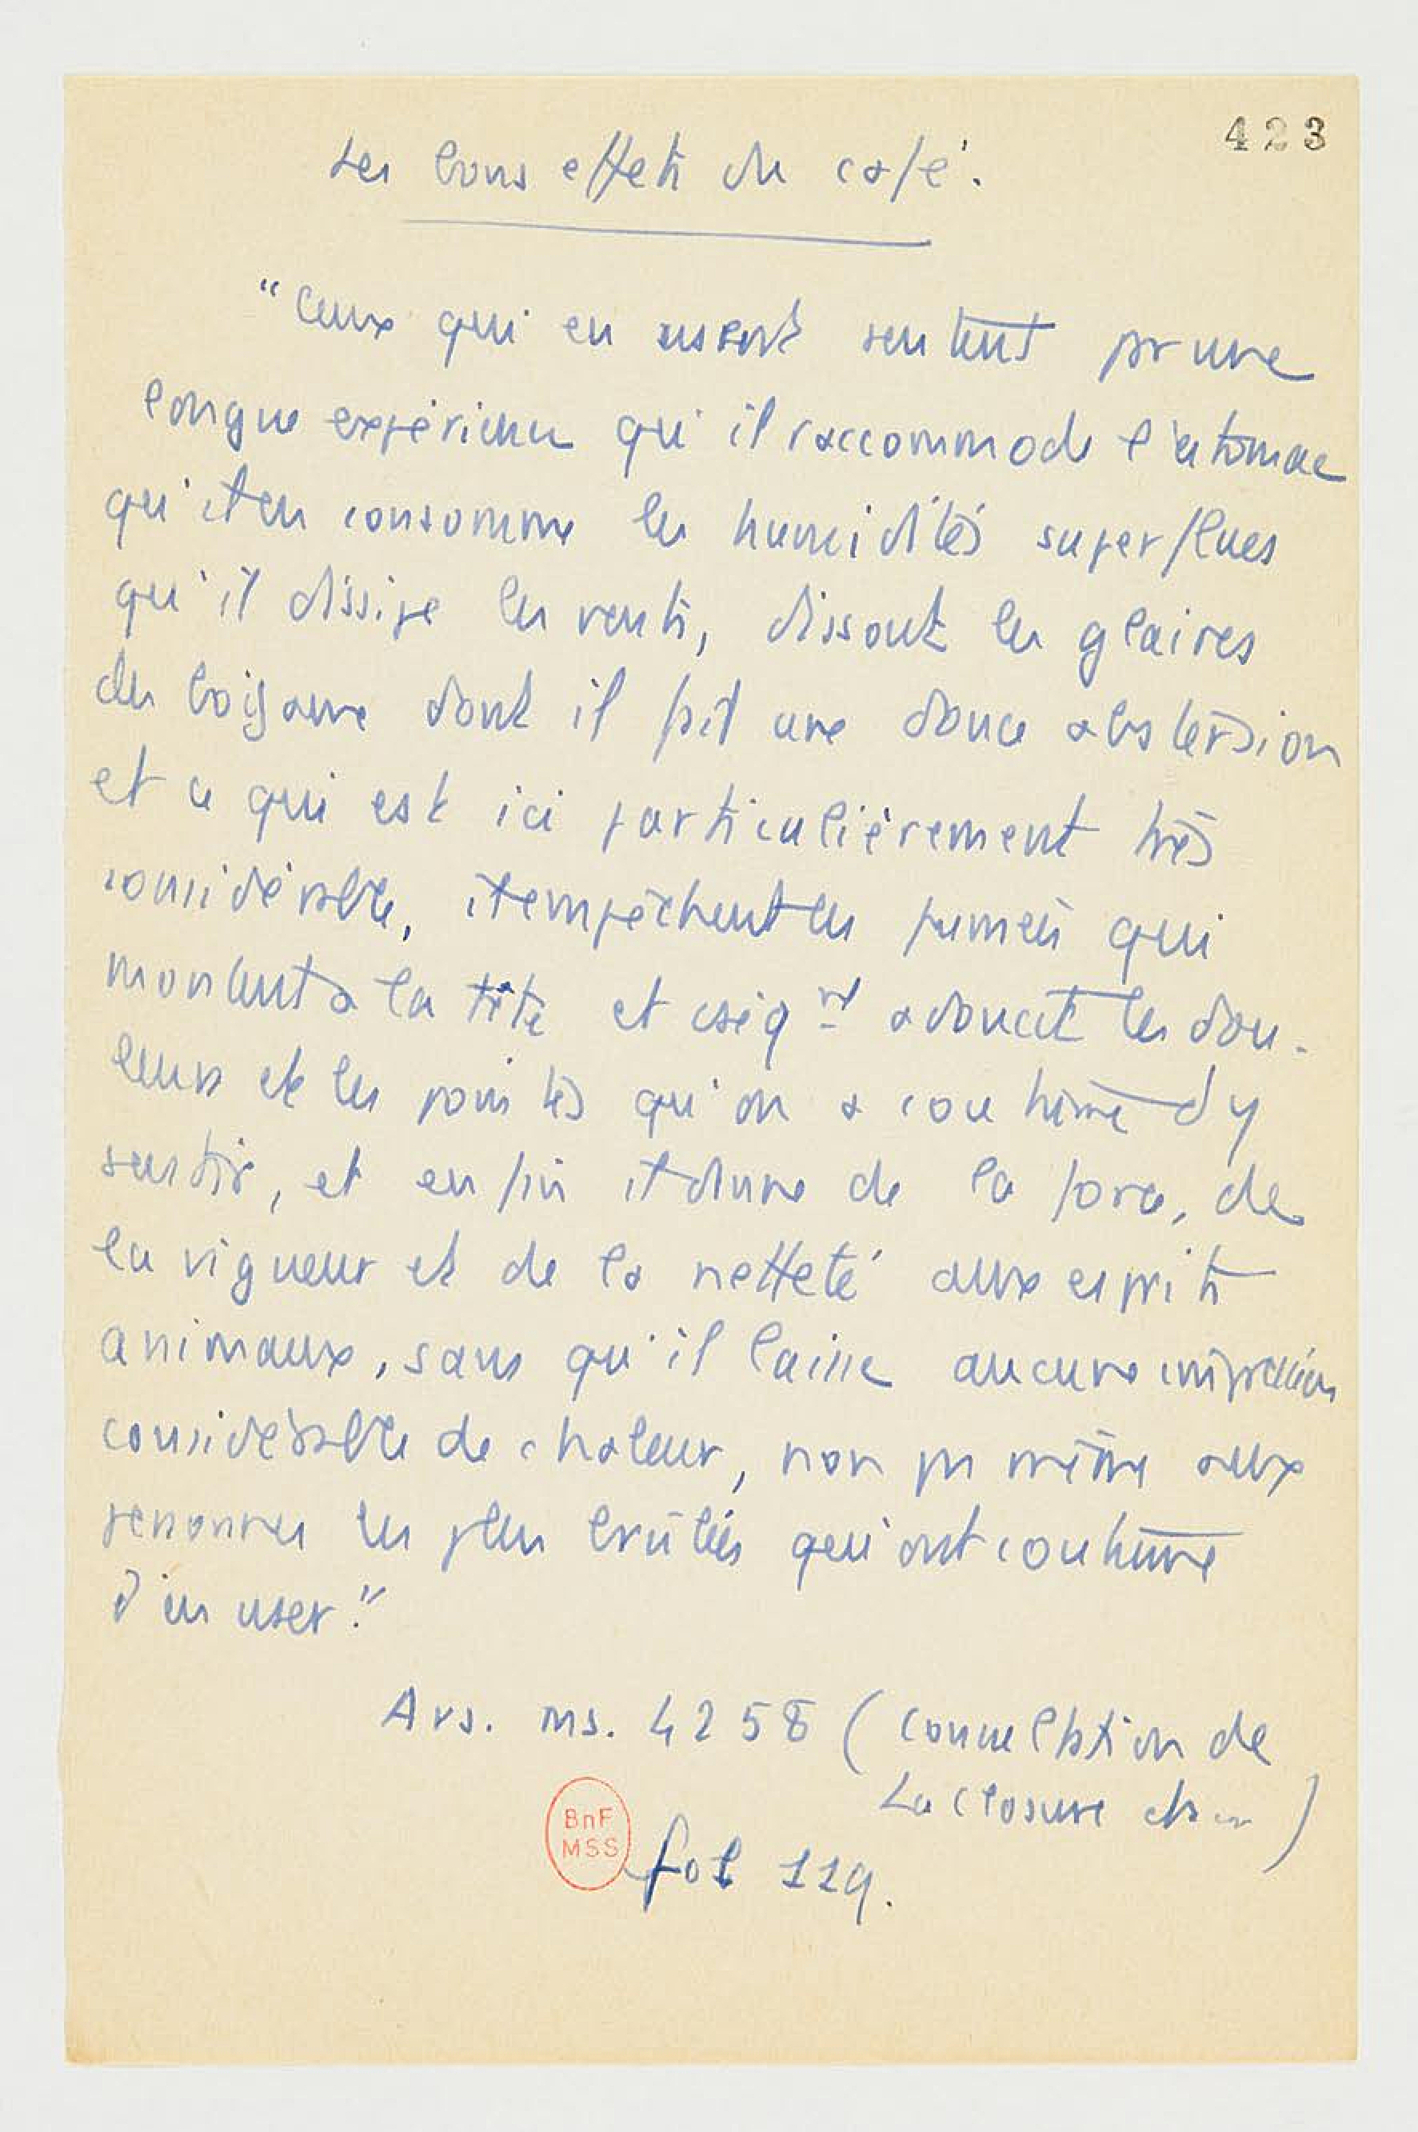 423
Les bons effets du café.
"Ceux qui en usent sentent par une
longue expérience qu'il raccommode l'estomac
qu'il en consomme les humidités superflues
qu'il dissipe les vents, dissout les glaires
des boyaux dont il fait une douce abstersion
et ce qui est ici particulièrement très
considérable, il empêchent les fumées qui
montent à la tête et cséqnt adoucit les dou-
leurs et les pointes qu'on a coutume d'y
sentir, et enfin il donne de la force, de
la vigueur et de la netteté aux esprits
animaux, sans qu'il laisse aucune impression
considérable de chaleur, non pas même aux
personnes les plus brûlées qui ont coutume
d'en user."
Ars. ms. 4258 (consultation de
La Closure)
BnF
MSS
fol 119.